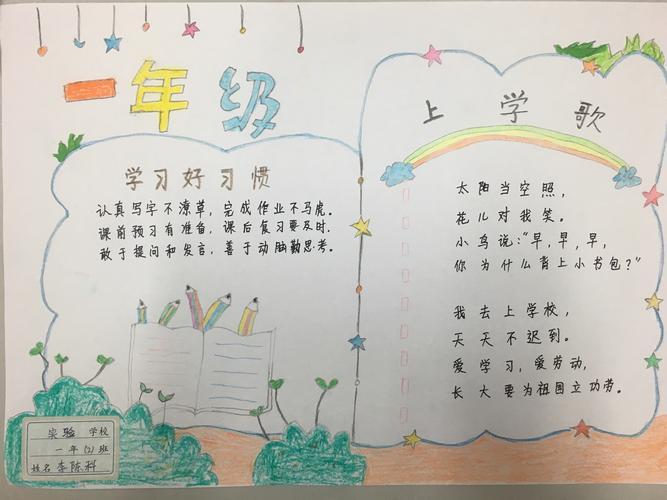 一年级
学习好习惯
认真写字不潦草，完成作业不马虎。
课前预习有准备，课后复习要及时，
敢于提问和发言，善于动脑勤思考。
上学歌
太阳当空照，
花儿对我笑。
小鸟说：“早，早，早，
你为什么背上小书包？”
我去上学校，
天天不迟到。
爱学习，爱劳动，
长大要为祖国立功劳。
实验 学校
一年(2)班
姓名 李陈科